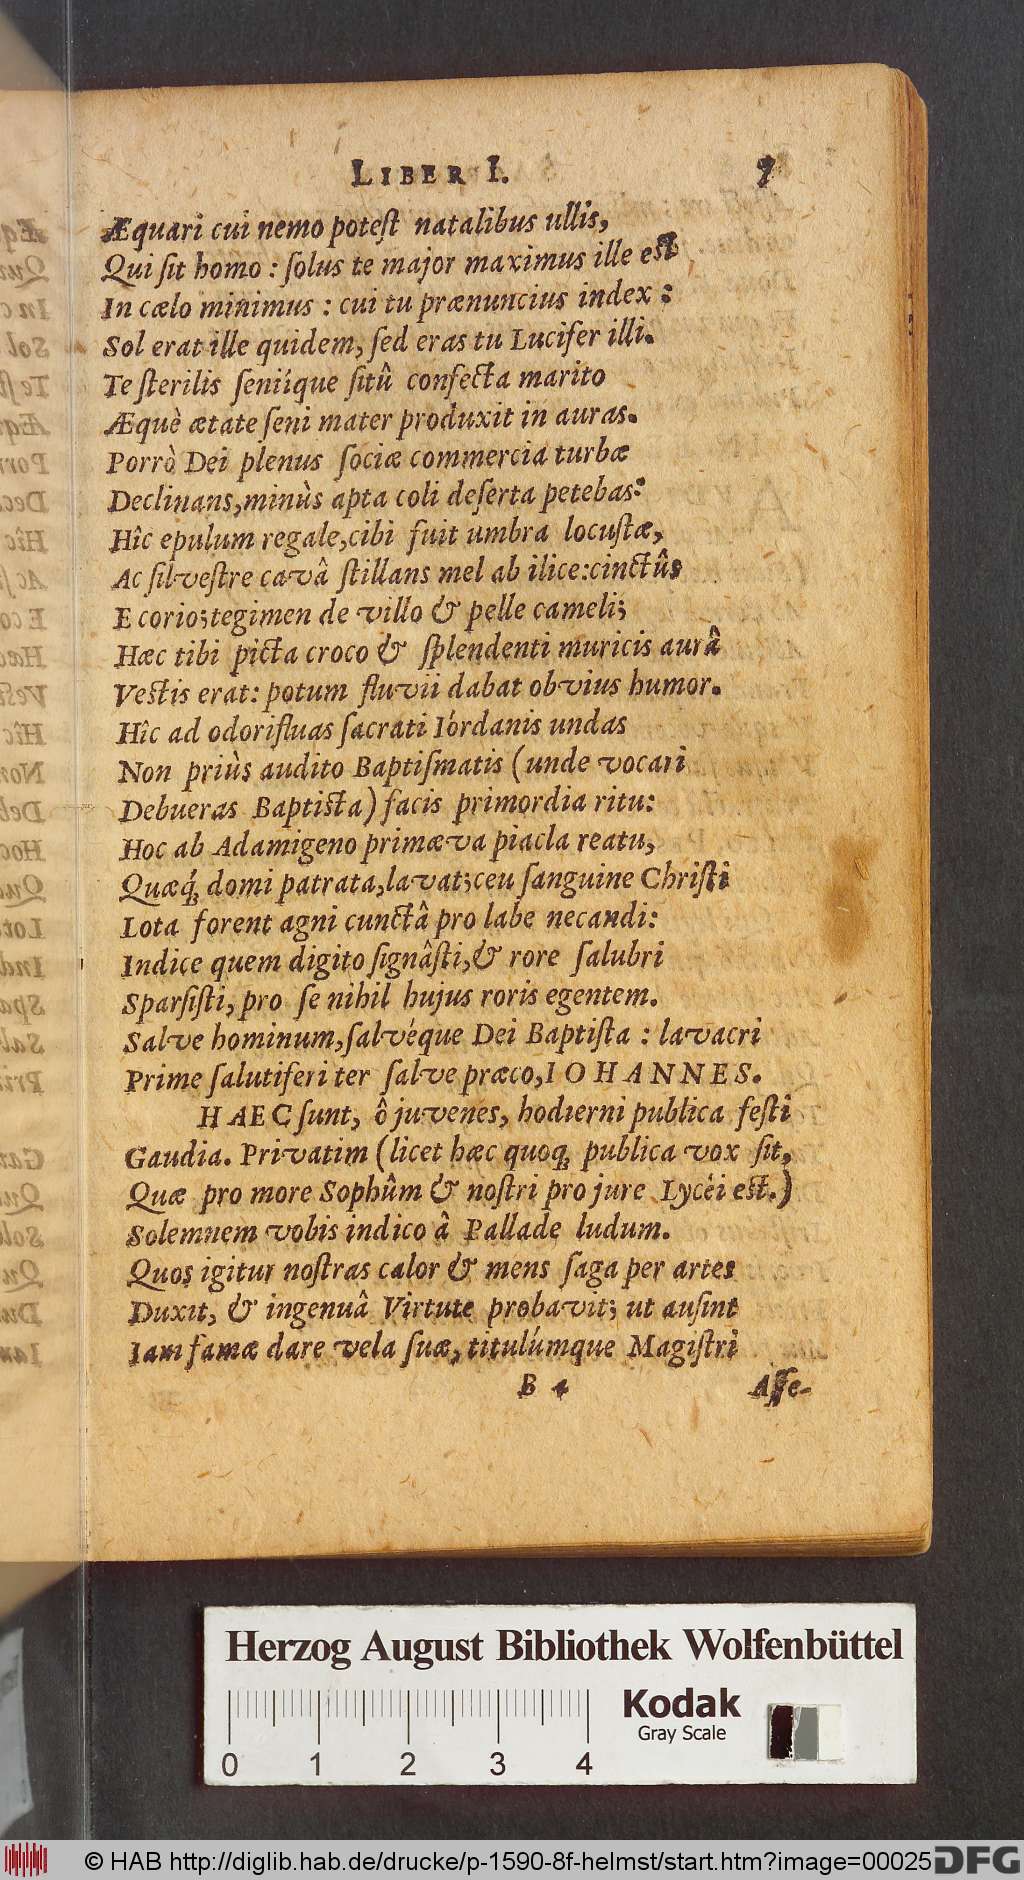 LIBER I. 7
Æquari cui nemo potest natalibus ullis,
Qui sit homo : solus te major maximus ille est
In cælo minimus : cui tu prænuncius index :
Sol erat ille quidem, sed eras tu Lucifer illi.
Te sterilis seniíque sitû confecta marito
Æquè ætate seni mater produxit in auras.
Porrò Dei plenus sociæ commercia turbæ
Declinans, minùs apta coli deserta petebas:
Hîc epulum regale, cibi fuit umbra locustæ,
Ac silvestre cavâ stillans mel ab ilice: cinctûs
E corio; tegimen de villo & pelle cameli;
Hæc tibi picta croco & splendenti muricis aurâ
Vestis erat: potum fluvii dabat obvius humor.
Hîc ad odorifluas sacrati Iórdanis undas
Non priùs audito Baptismatis (unde vocari
Debueras Baptista) facis primordia ritu:
Hoc ab Adamigeno primæva piacla reatu,
Quæq́; domi patrata, lavat; ceu sanguine Christi
Lota forent agni cunctâ pro labe necandi:
Indice quem digito signâsti, & rore salubri
Sparsisti, pro se nihil hujus roris egentem.
Salve hominum, salvéque Dei Baptista : lavacri
Prime salutiferi ter salve præco, IOHANNES.
HAEC sunt, ô juvenes, hodierni publica festi
Gaudia. Privatim (licet hæc quoq; publica vox sit,
Quæ pro more Sophûm & nostri pro jure Lycéi est.)
Solemnem vobis indico â Pallade ludum.
Quos igitur nostras calor & mens saga per artes
Duxit, & ingenuâ Virtute probavit; ut ausint
Iam famæ dare vela suæ, titulúmque Magistri
B 4 Asse-
Herzog August Bibliothek Wolfenbüttel
Kodak
Gray Scale
0 1 2 3 4
© HAB http://diglib.hab.de/drucke/p-1590-8f-helmst/start.htm?image=00025 DFG